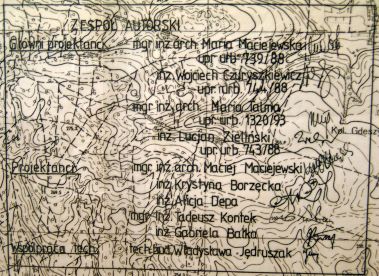 ZESPÓŁ AUTORSKI
Główni projektanci: mgr inż. arch. Maria Maciejewska
upr. urb. 739/88
inż. Wojciech Czuryszkiewicz
upr. urb. 744/88
mgr inż. arch. Maria
upr. urb. 1320/93
inż. Lucjan Zieliński
upr. urb. 743/88
Projektanci: mgr inż. arch. Maciej Maciejewski
inż. Krystyna Borzęcka
inż. Alicja Depa
mgr inż. Tadeusz Kontek
inż. Gabriela Bałka
współpraca tech. tech. bud. Władysława Jędruszak